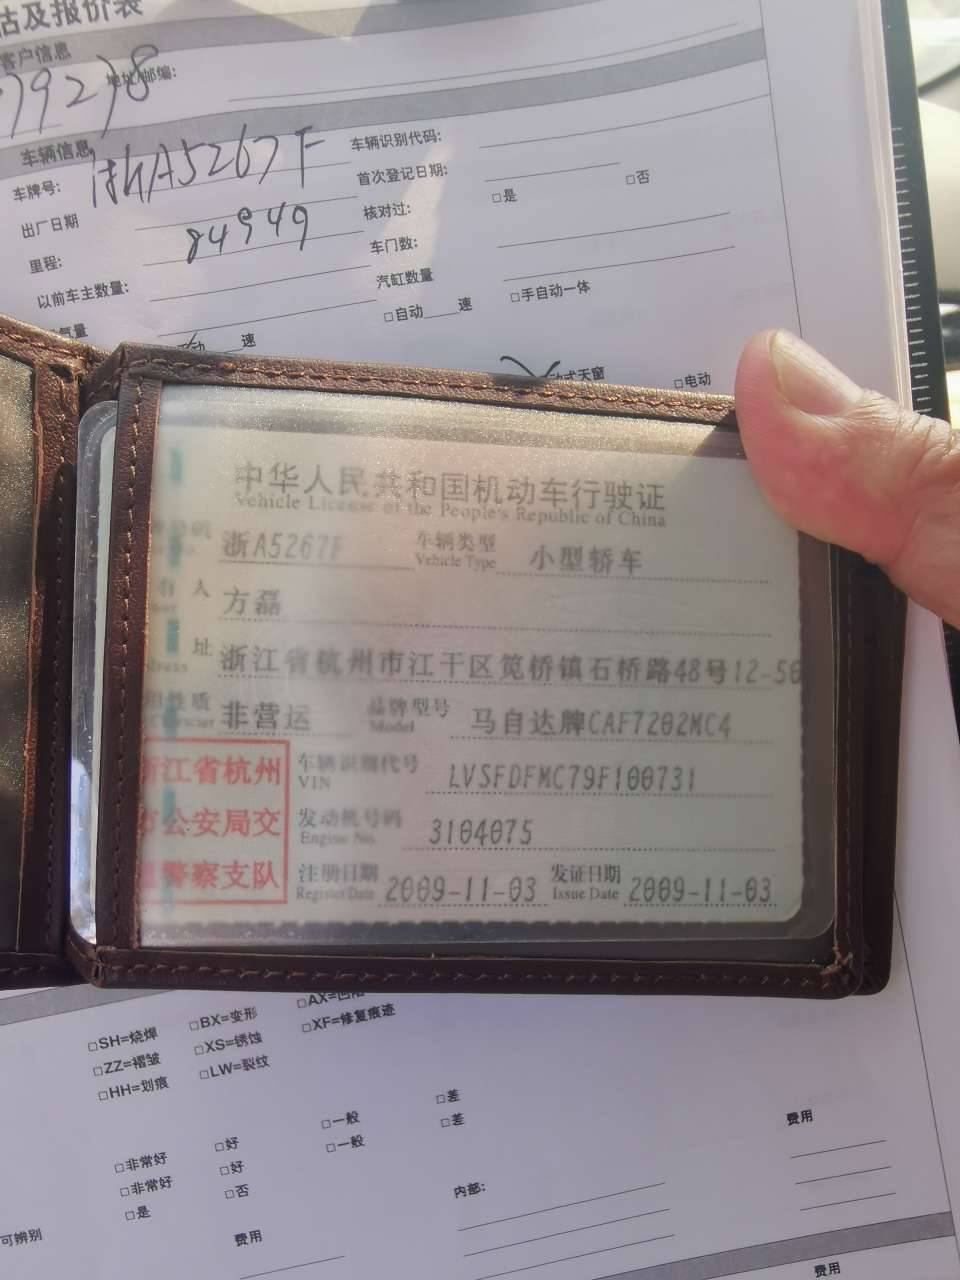 估及报价表
客户信息
79278
地址/邮编:
车辆信息
车牌号: 浙A5267F 车辆识别代码:
出厂日期 首次登记日期:
里程: 84949 核对过: □是 □否
以前车主数量: 车门数:
气量 汽缸数量
速 □自动____速 □手自动一体
动式天窗 □电动
中华人民共和国机动车行驶证
Vehicle License of the People's Republic of China
浙A5267F 车辆类型 小型轿车
Vehicle Type
人 方磊
址 浙江省杭州市江干区笕桥镇石桥路48号12-50
性质 非营运 品牌型号 马自达牌CAF7202MC4
Model
浙江省杭州
市公安局交
通警察支队
车辆识别代号 LVSFDFMC79F100731
VIN
发动机号码 3104075
Engine No.
注册日期 2009-11-03 发证日期 2009-11-03
Register Date Issue Date
□SH=烧焊 □BX=变形 □AX=凹陷
□ZZ=褶皱 □XS=锈蚀 □XF=修复痕迹
□HH=划痕 □LW=裂纹
□非常好 □好 □一般 □差
□非常好 □好 □一般 □差
□是 □否
可辨别
费用
内部:
费用
费用